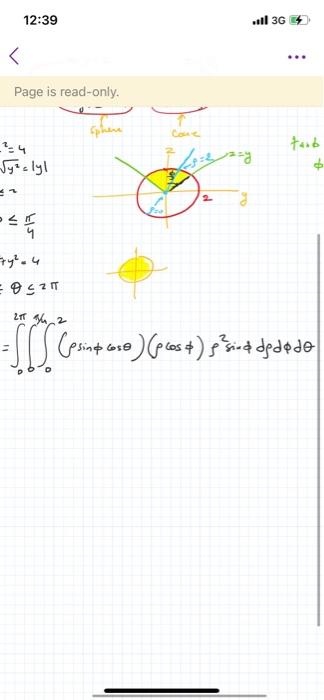 12:39
3G
Page is read-only.
Sphere
Cone
z
²=4
√y² = |y|
ρ=2
z=y
ρ=0
2
y
≤ π/4
+y²=4
≤ θ ≤ 2π
= ∫₀^2π ∫₀^π/4 ∫₀^2 (ρ sinφ cosθ)(ρ cosφ) ρ² sinφ dρ dφ dθ